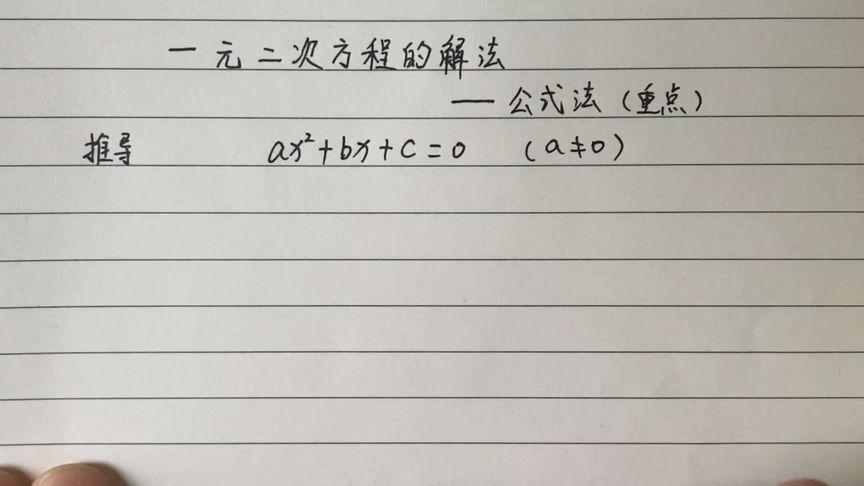 一元二次方程的解法
——公式法（重点）
推导 ax²+bx+c=0 （a≠0）